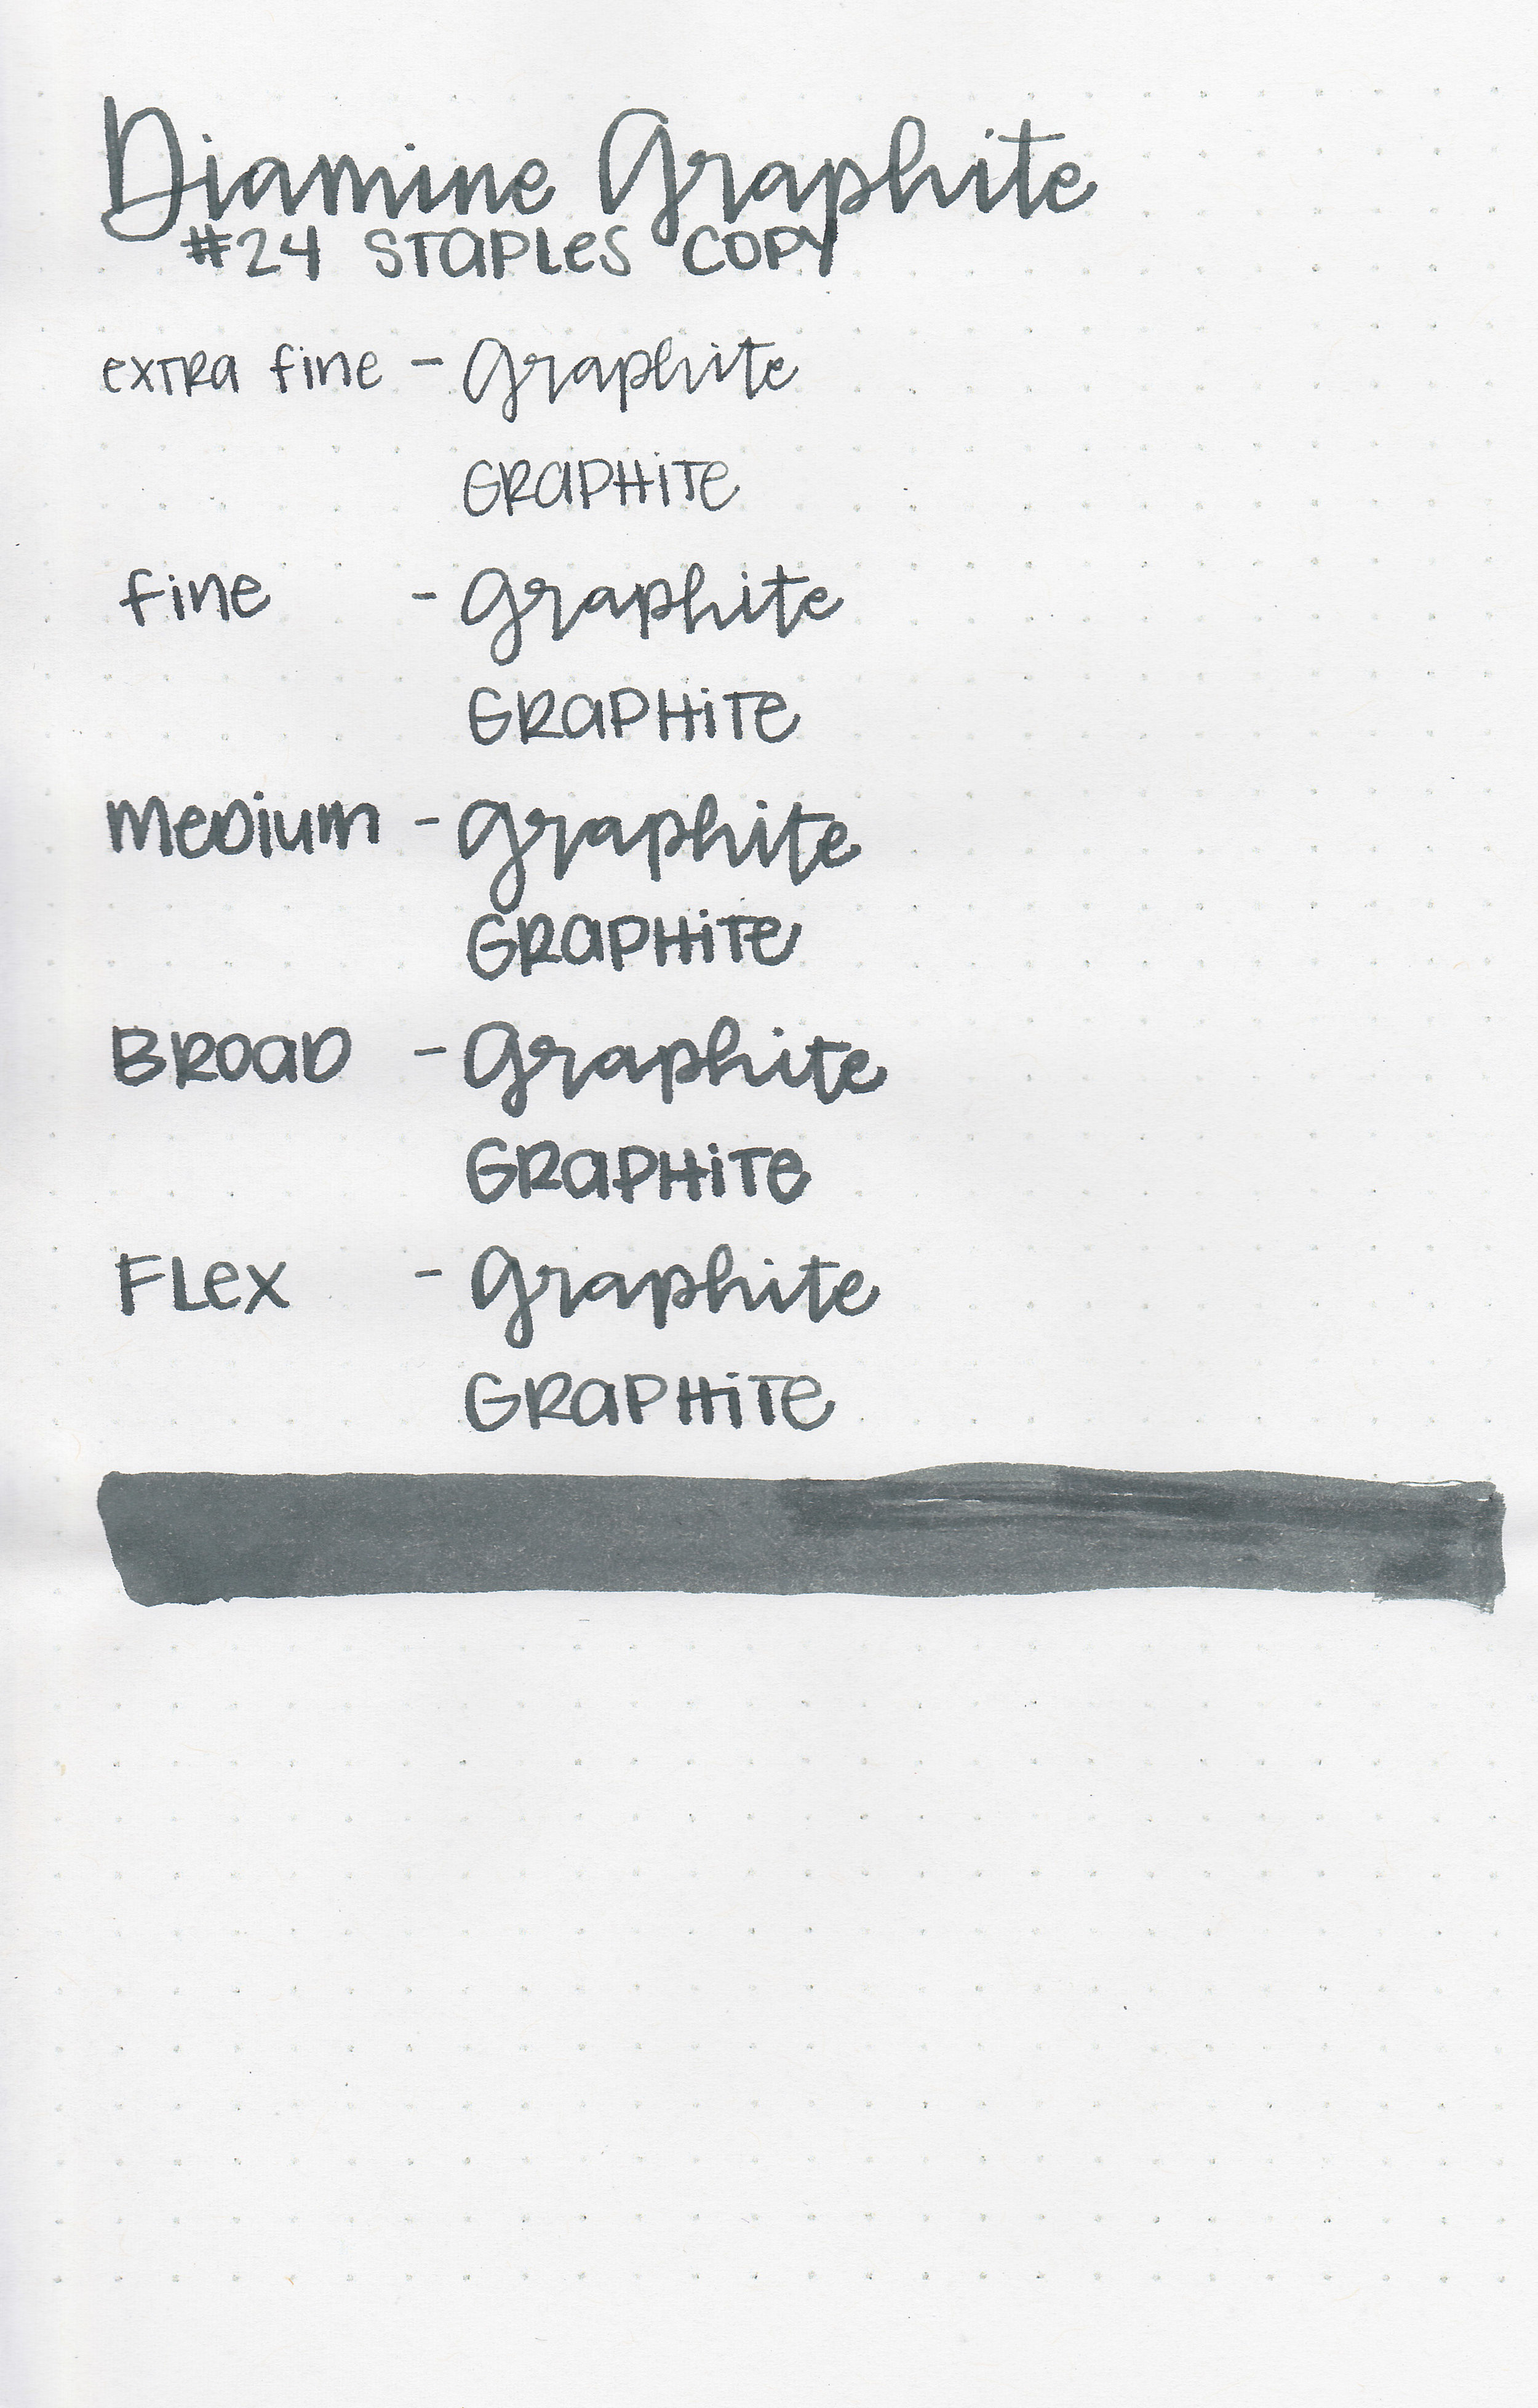 Diamine Graphite
#24 STAPLES COPY
extra fine - Graphite
GRAPHITE
fine - Graphite
GRAPHITE
Medium - Graphite
GRAPHITE
BROAD - Graphite
GRAPHITE
FLex - Graphite
GRAPHITE